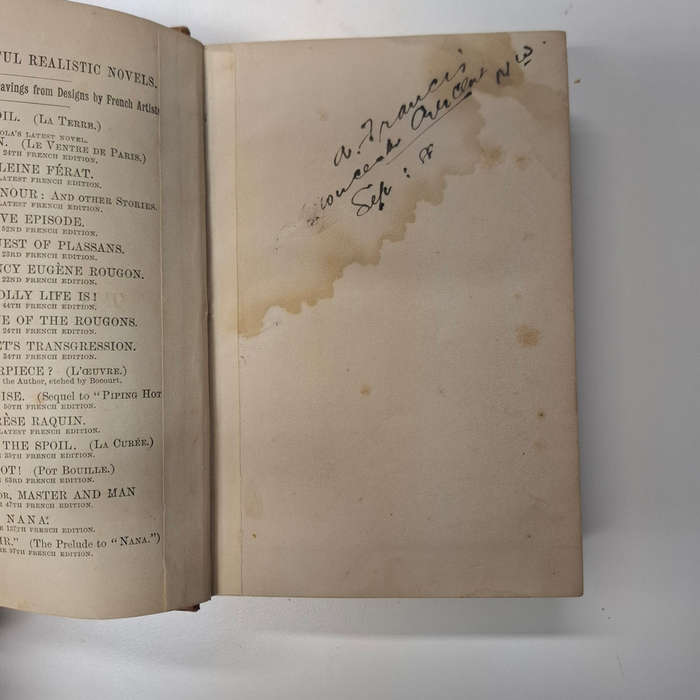 FUL REALISTIC NOVELS.
avings from Designs by French Artists
OIL. (LA TERRE.)
OLA'S LATEST NOVEL.
N. (LE VENTRE DE PARIS.)
24TH FRENCH EDITION.
LEINE FÉRAT.
LATEST FRENCH EDITION.
NOUR: AND OTHER STORIES.
LATEST FRENCH EDITION.
VE EPISODE.
52ND FRENCH EDITION.
UEST OF PLASSANS.
23RD FRENCH EDITION.
NCY EUGÈNE ROUGON.
22ND FRENCH EDITION.
OLLY LIFE IS!
44TH FRENCH EDITION.
E OF THE ROUGONS.
24TH FRENCH EDITION.
ET'S TRANSGRESSION.
34TH FRENCH EDITION.
RPIECE? (L'ŒUVRE.)
the Author, etched by Bocourt.
ISE. (Sequel to "PIPING HOT
50TH FRENCH EDITION.
RÈSE RAQUIN.
LATEST FRENCH EDITION.
THE SPOIL. (LA CURÉE.)
35TH FRENCH EDITION.
OT! (POT BOUILLE.)
63RD FRENCH EDITION.
OR, MASTER AND MAN
47TH FRENCH EDITION.
NANA.
127TH FRENCH EDITION.
IR." (The Prelude to "NANA.")
97TH FRENCH EDITION.
A. Francis
Crescent NW.
Sep: